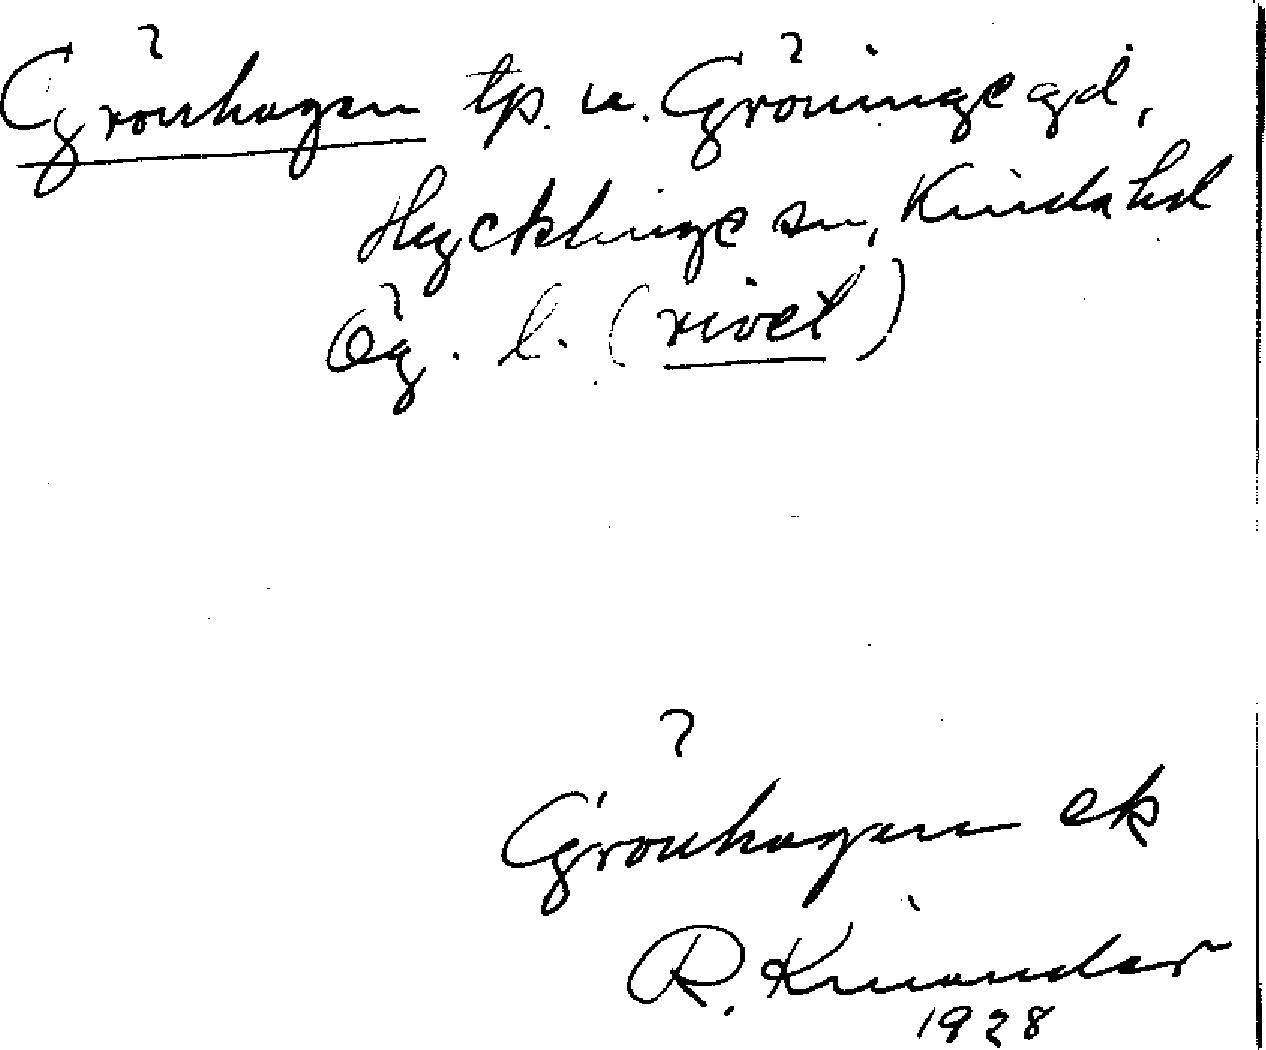 Grönhagen tp. u. Gröninge gd,
Hycklinge sn, Kinda hd
Ög. l. (rivet)
Grönhagen ek
R. Kinander
1928